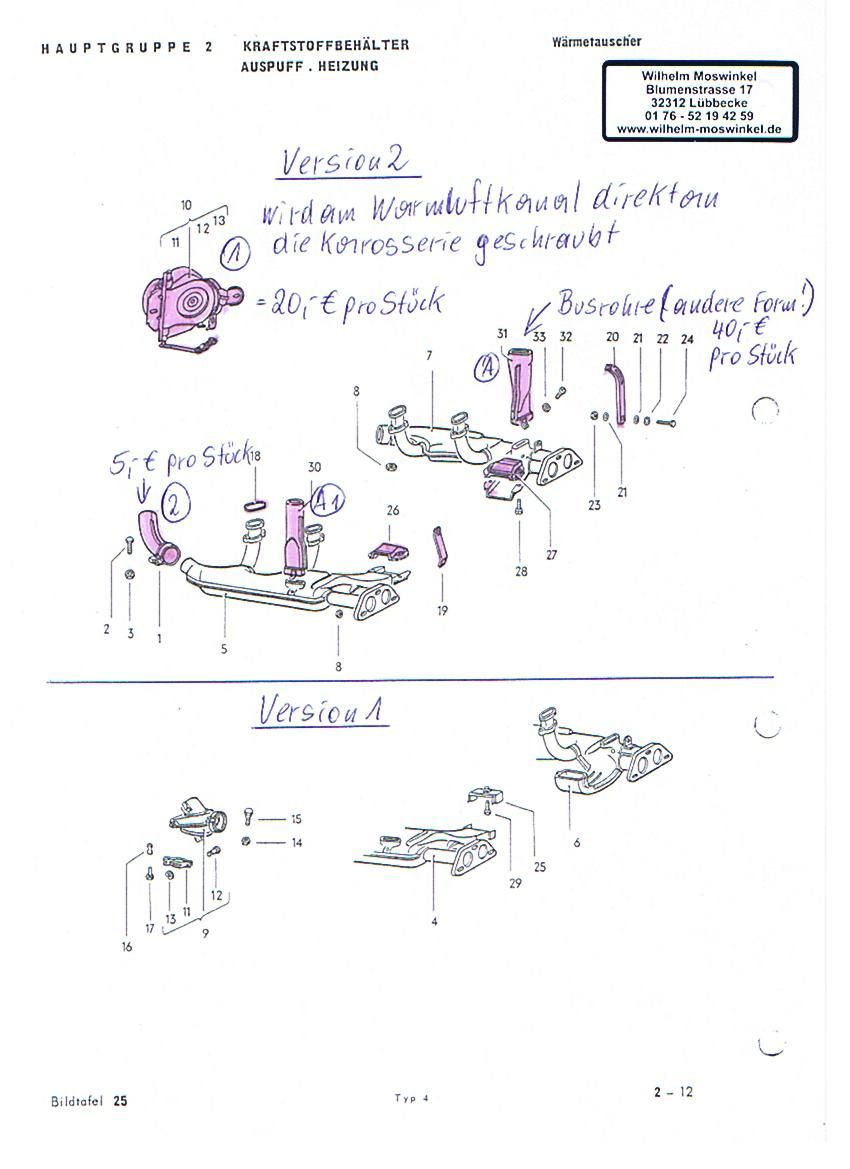 HAUPTGRUPPE 2 KRAFTSTOFFBEHÄLTER
AUSPUFF . HEIZUNG
Wärmetauscher
Wilhelm Moswinkel
Blumenstrasse 17
32312 Lübbecke
01 76 - 52 19 42 59
www.wilhelm-moswinkel.de
Version 2
wird am Warmluftkanal direkt an
die Karosserie geschraubt
10
11 12 13
1
= 20,- € pro Stück
Busrohre (andere Form!)
40,- €
pro Stück
31 33 32 20 21 22 24
7
A
8
23 21
27
28
5,- € pro Stück
2
18
30
A1
26
19
2 3 1
5
8
Version 1
15
14
16
17 13 11 12
9
6
25
29
4
Bildtafel 25
Typ 4
2 - 12